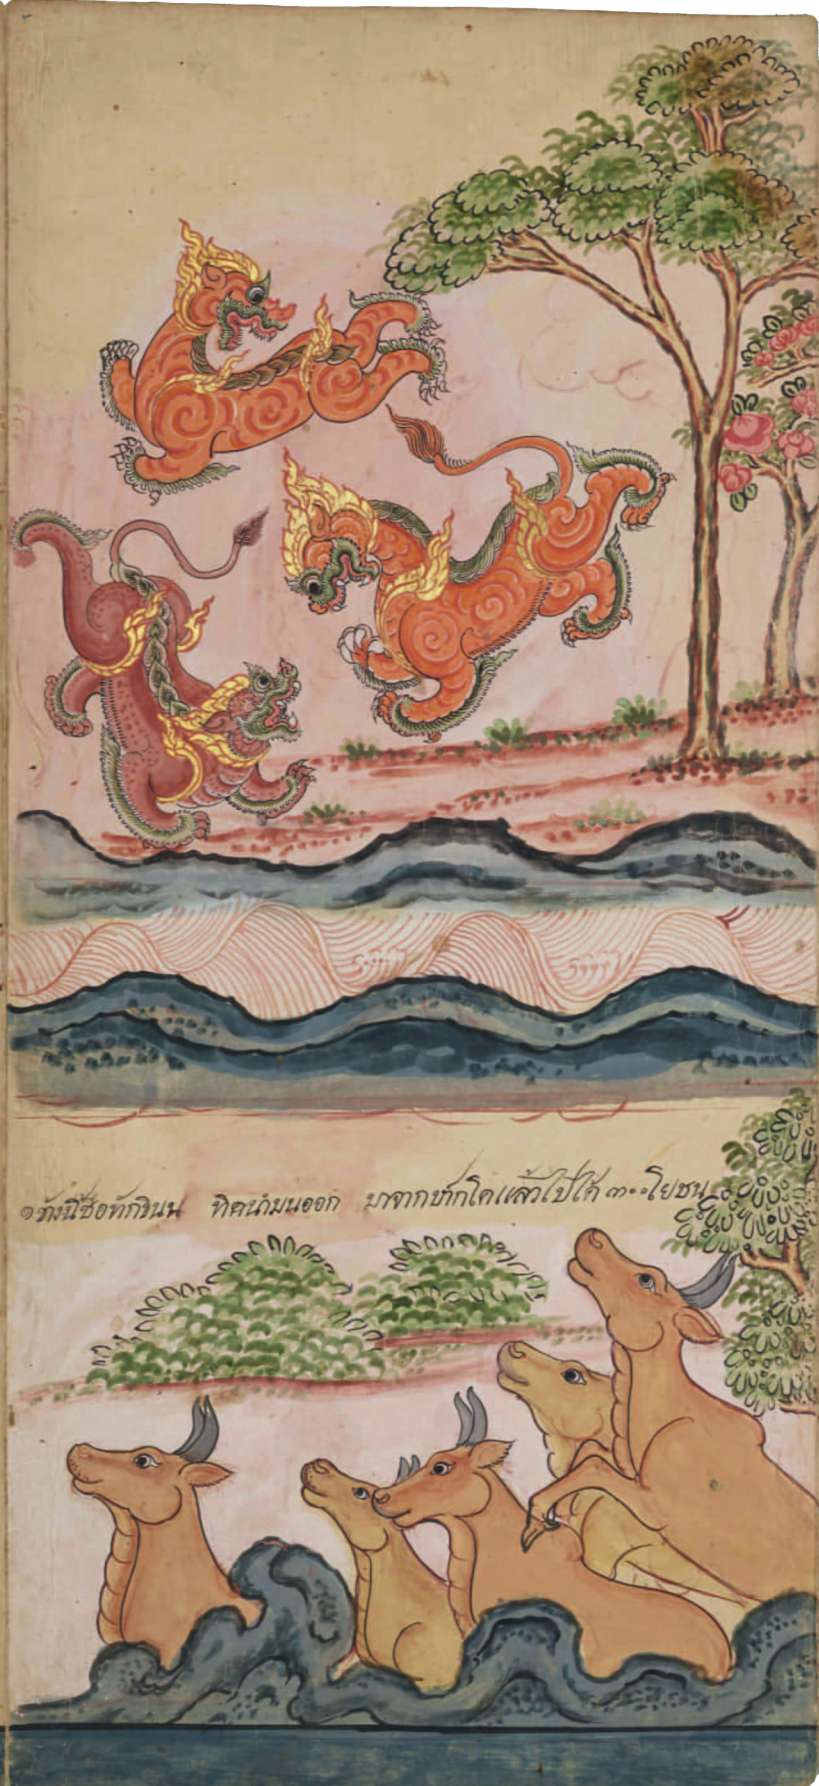 ๏ ข้างนี้ชื่อทักขินน ทิศน้ำมนออก มาจากปากโคแล้วไปได้ ๓๐๐ โยชน